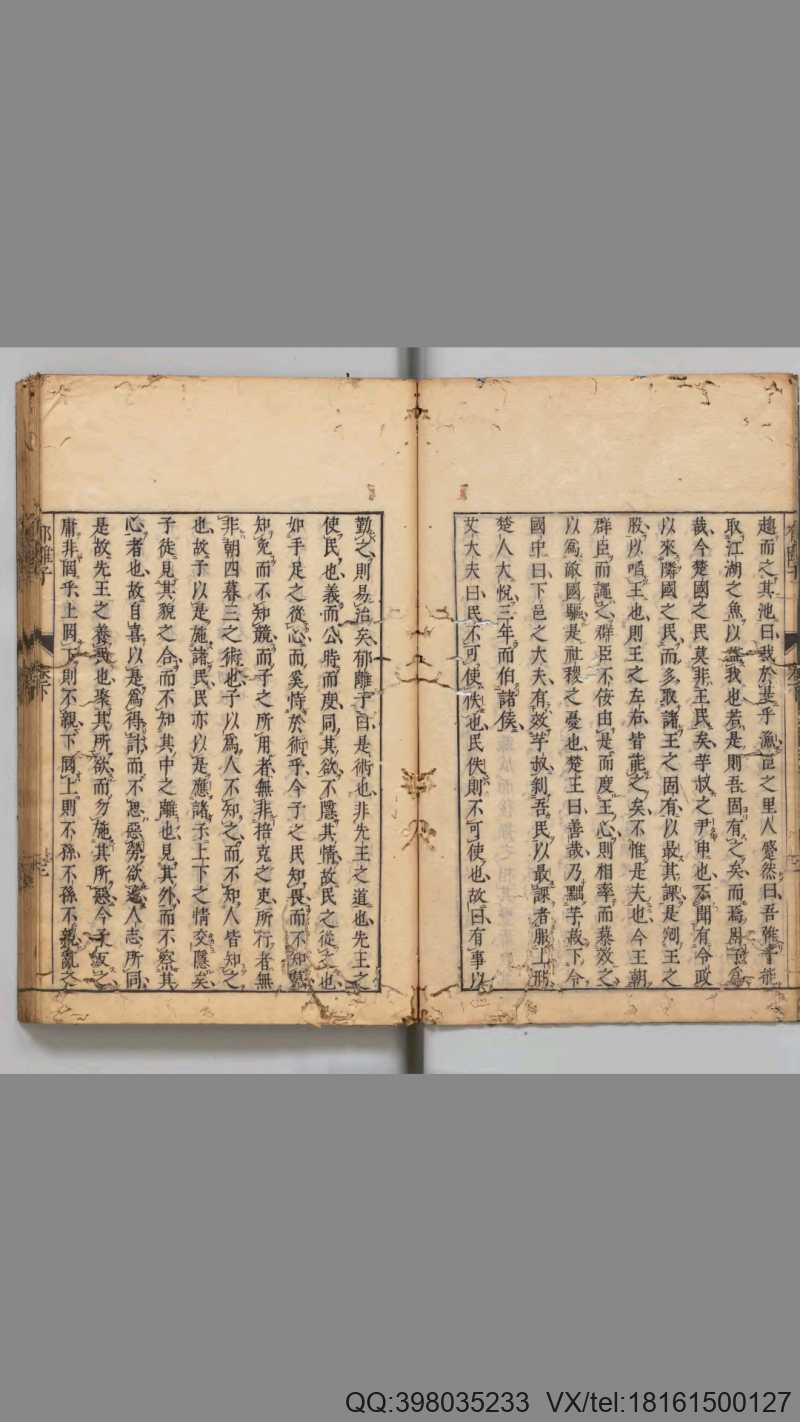 趨而之其池曰我於是乎漁邑之里人蹙然曰吾雖
取江湖之魚以益我也若是則吾固有之矣而焉用子爲
哉今楚國之民莫非王民矣芋叔之尹申也不聞有令政
以來隣國之民而多取諸王之固有以最其課是剜王之
股以啗王也則王之左右皆能之矣不惟是夫也今王朝
群臣而譴之群臣不佞由是而度王心則相率而慕效之
以爲敵國驅是社稷之憂也楚王曰善哉乃黜芋叔下令
國中曰下邑之大夫有效芋叔剝吾民以最課者服上刑
楚人大悅三年而伯諸侯
艾大夫曰民不可使佚也民佚則不可使也故曰有事以
勤之則易治矣郁離子曰是術也非先王之道也先王之
使民也義而公時而度同其欲不隱其情故民之從之也
如手足之從心而奚恃於術乎今子之民知畏而不知
知免而不知競而子之所用者無非掊克之吏所行者無
非朝四暮三之術也子以爲人不知之而不知人皆知之
也故子以是施諸民民亦以是應諸子上下之情交隱矣
子徒見其貌之合而不知其中之離也見其外而不察其
心者也故自喜以是爲得計而不思惡勞欲逸人志所同
是故先王之養民也聚其所欲而勿施其所惡今子反之
庸非罔乎上罔下則不親下罔上則不孫不孫不親亂之
郁離子
QQ:398035233 VX/tel:18161500127